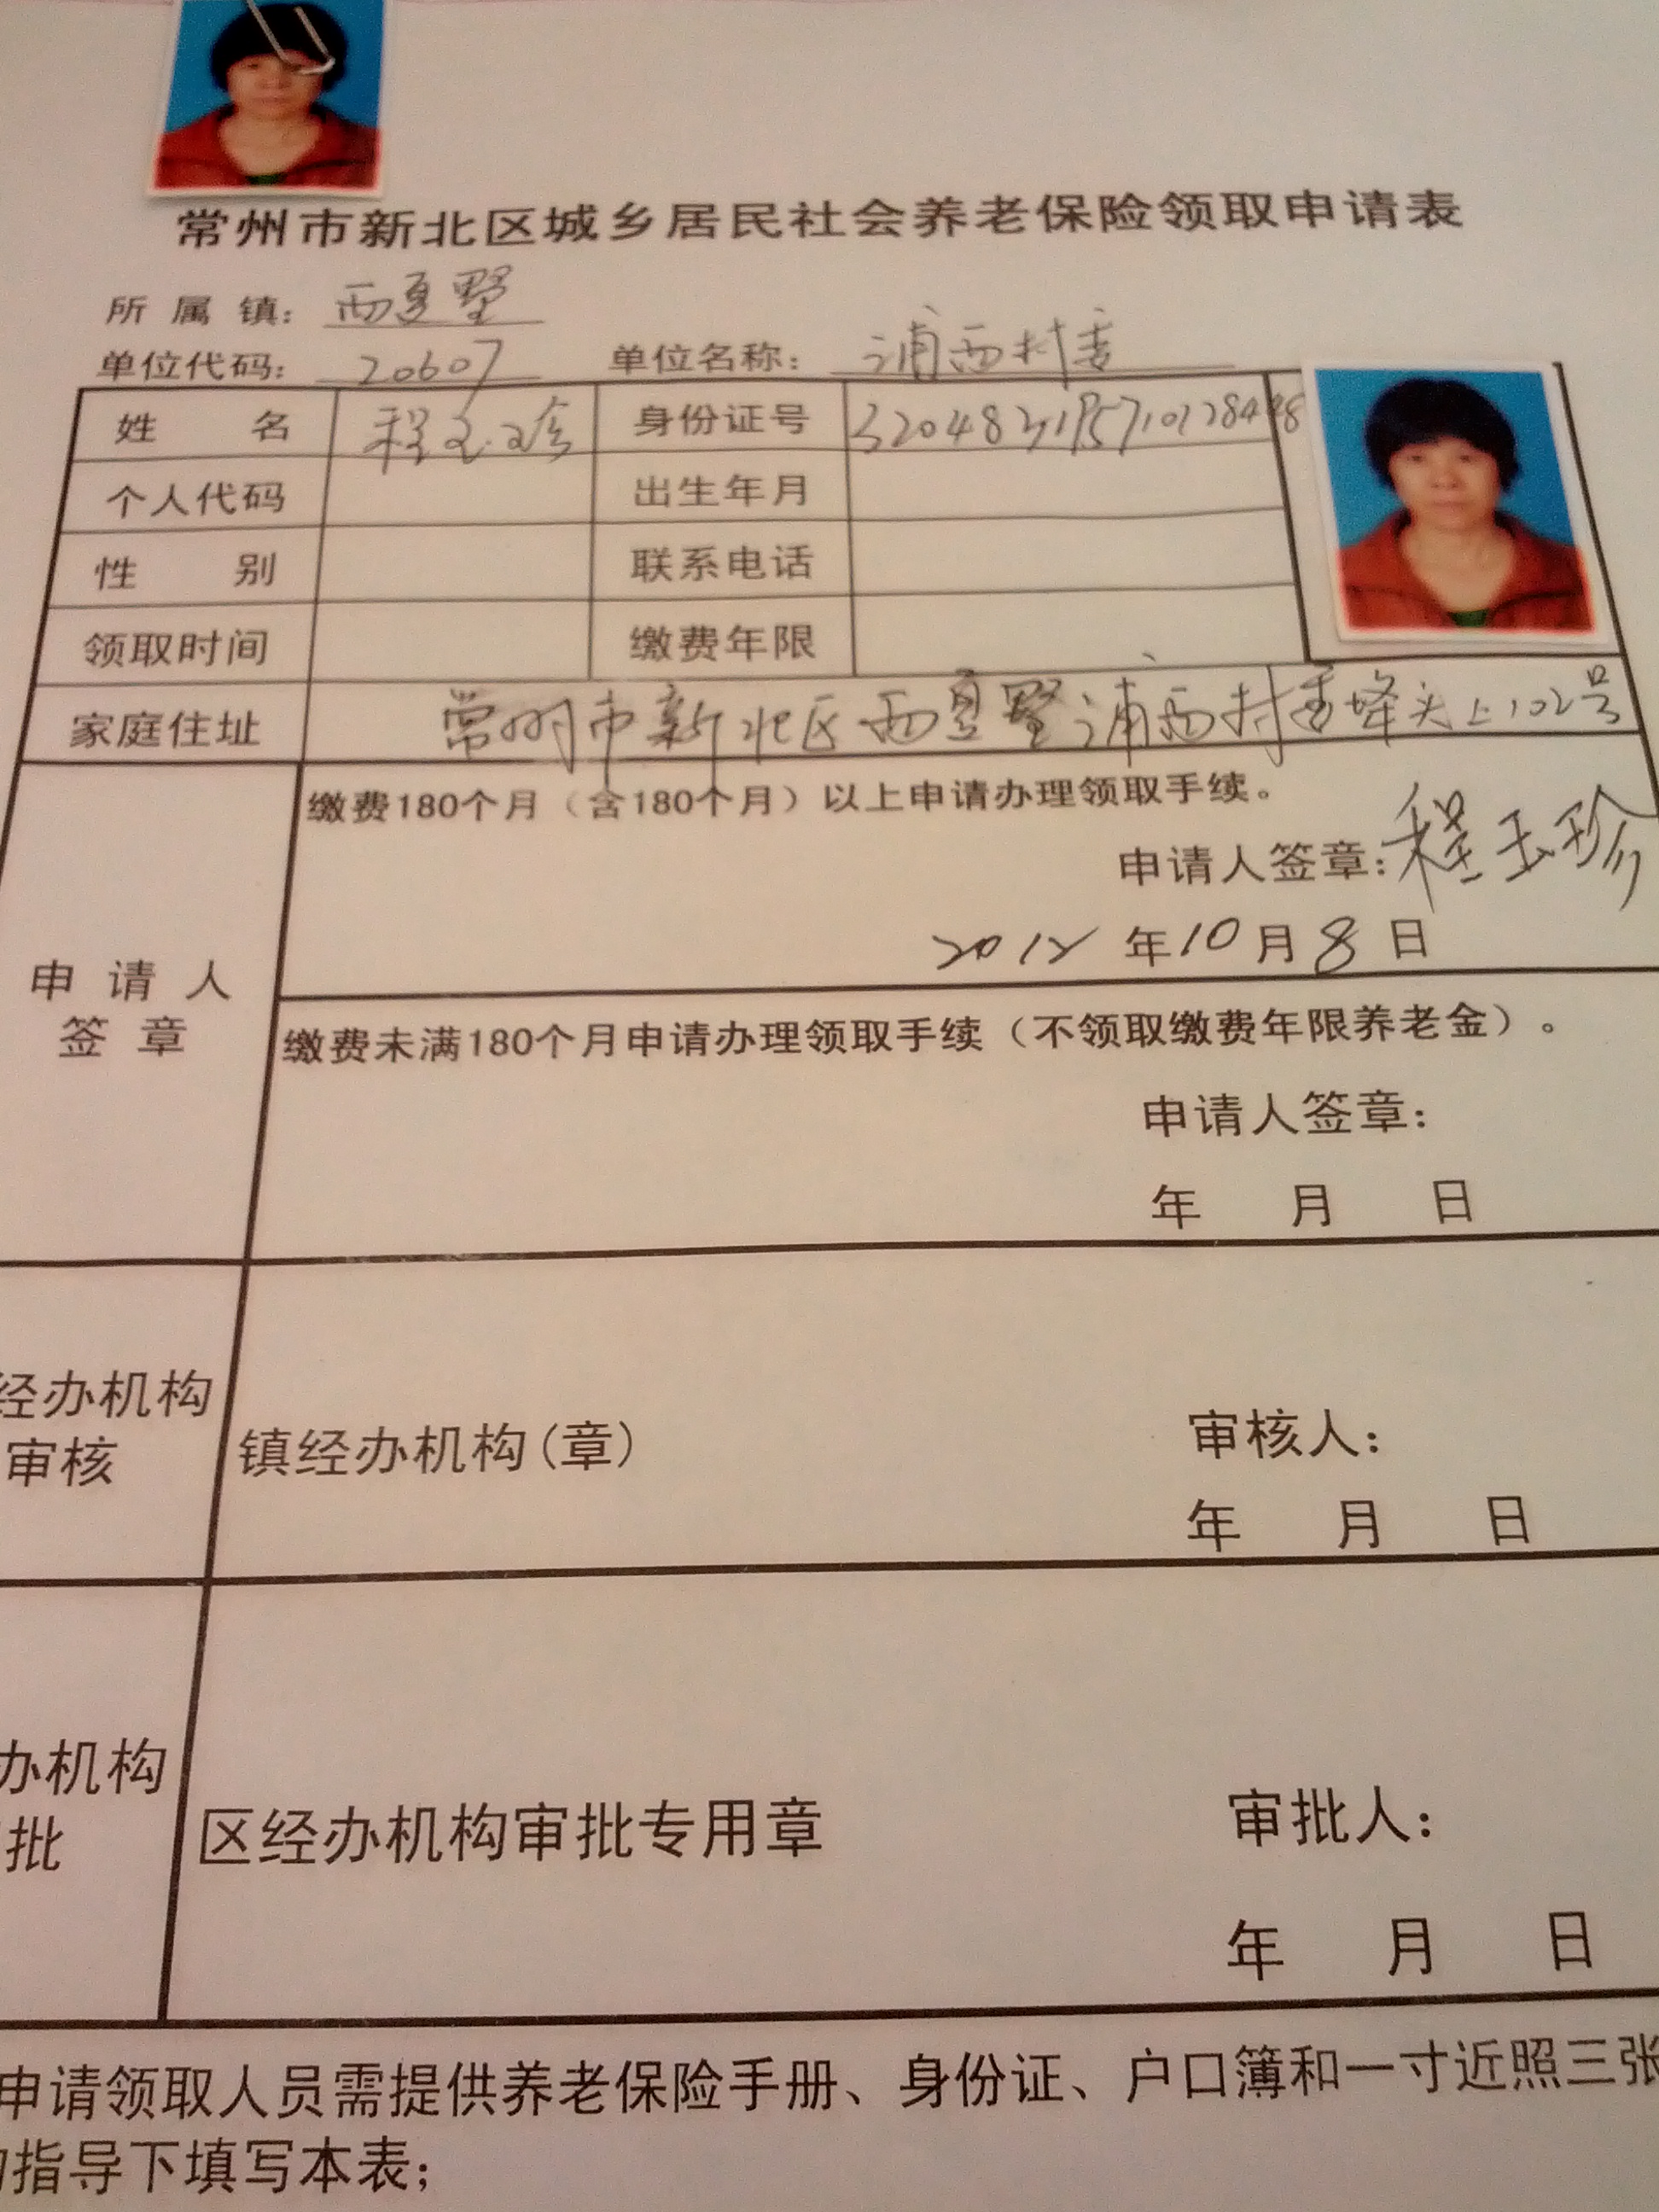 常州市新北区城乡居民社会养老保险领取申请表
所属镇：西夏墅
单位代码：20607 单位名称：浦西村委
姓名 程玉珍 身份证号
个人代码 出生年月
性别 联系电话
领取时间 缴费年限
家庭住址 常州市新北区西夏墅浦西村委头上102号
缴费180个月（含180个月）以上申请办理领取手续。
申请人签章：程玉珍
2012年10月8日
申请人
签章
缴费未满180个月申请办理领取手续（不领取缴费年限养老金）。
申请人签章：
年 月 日
经办机构
审核
镇经办机构(章) 审核人：
年 月 日
办机构
批
区经办机构审批专用章 审批人：
年 月 日
申请领取人员需提供养老保险手册、身份证、户口簿和一寸近照三张
指导下填写本表；